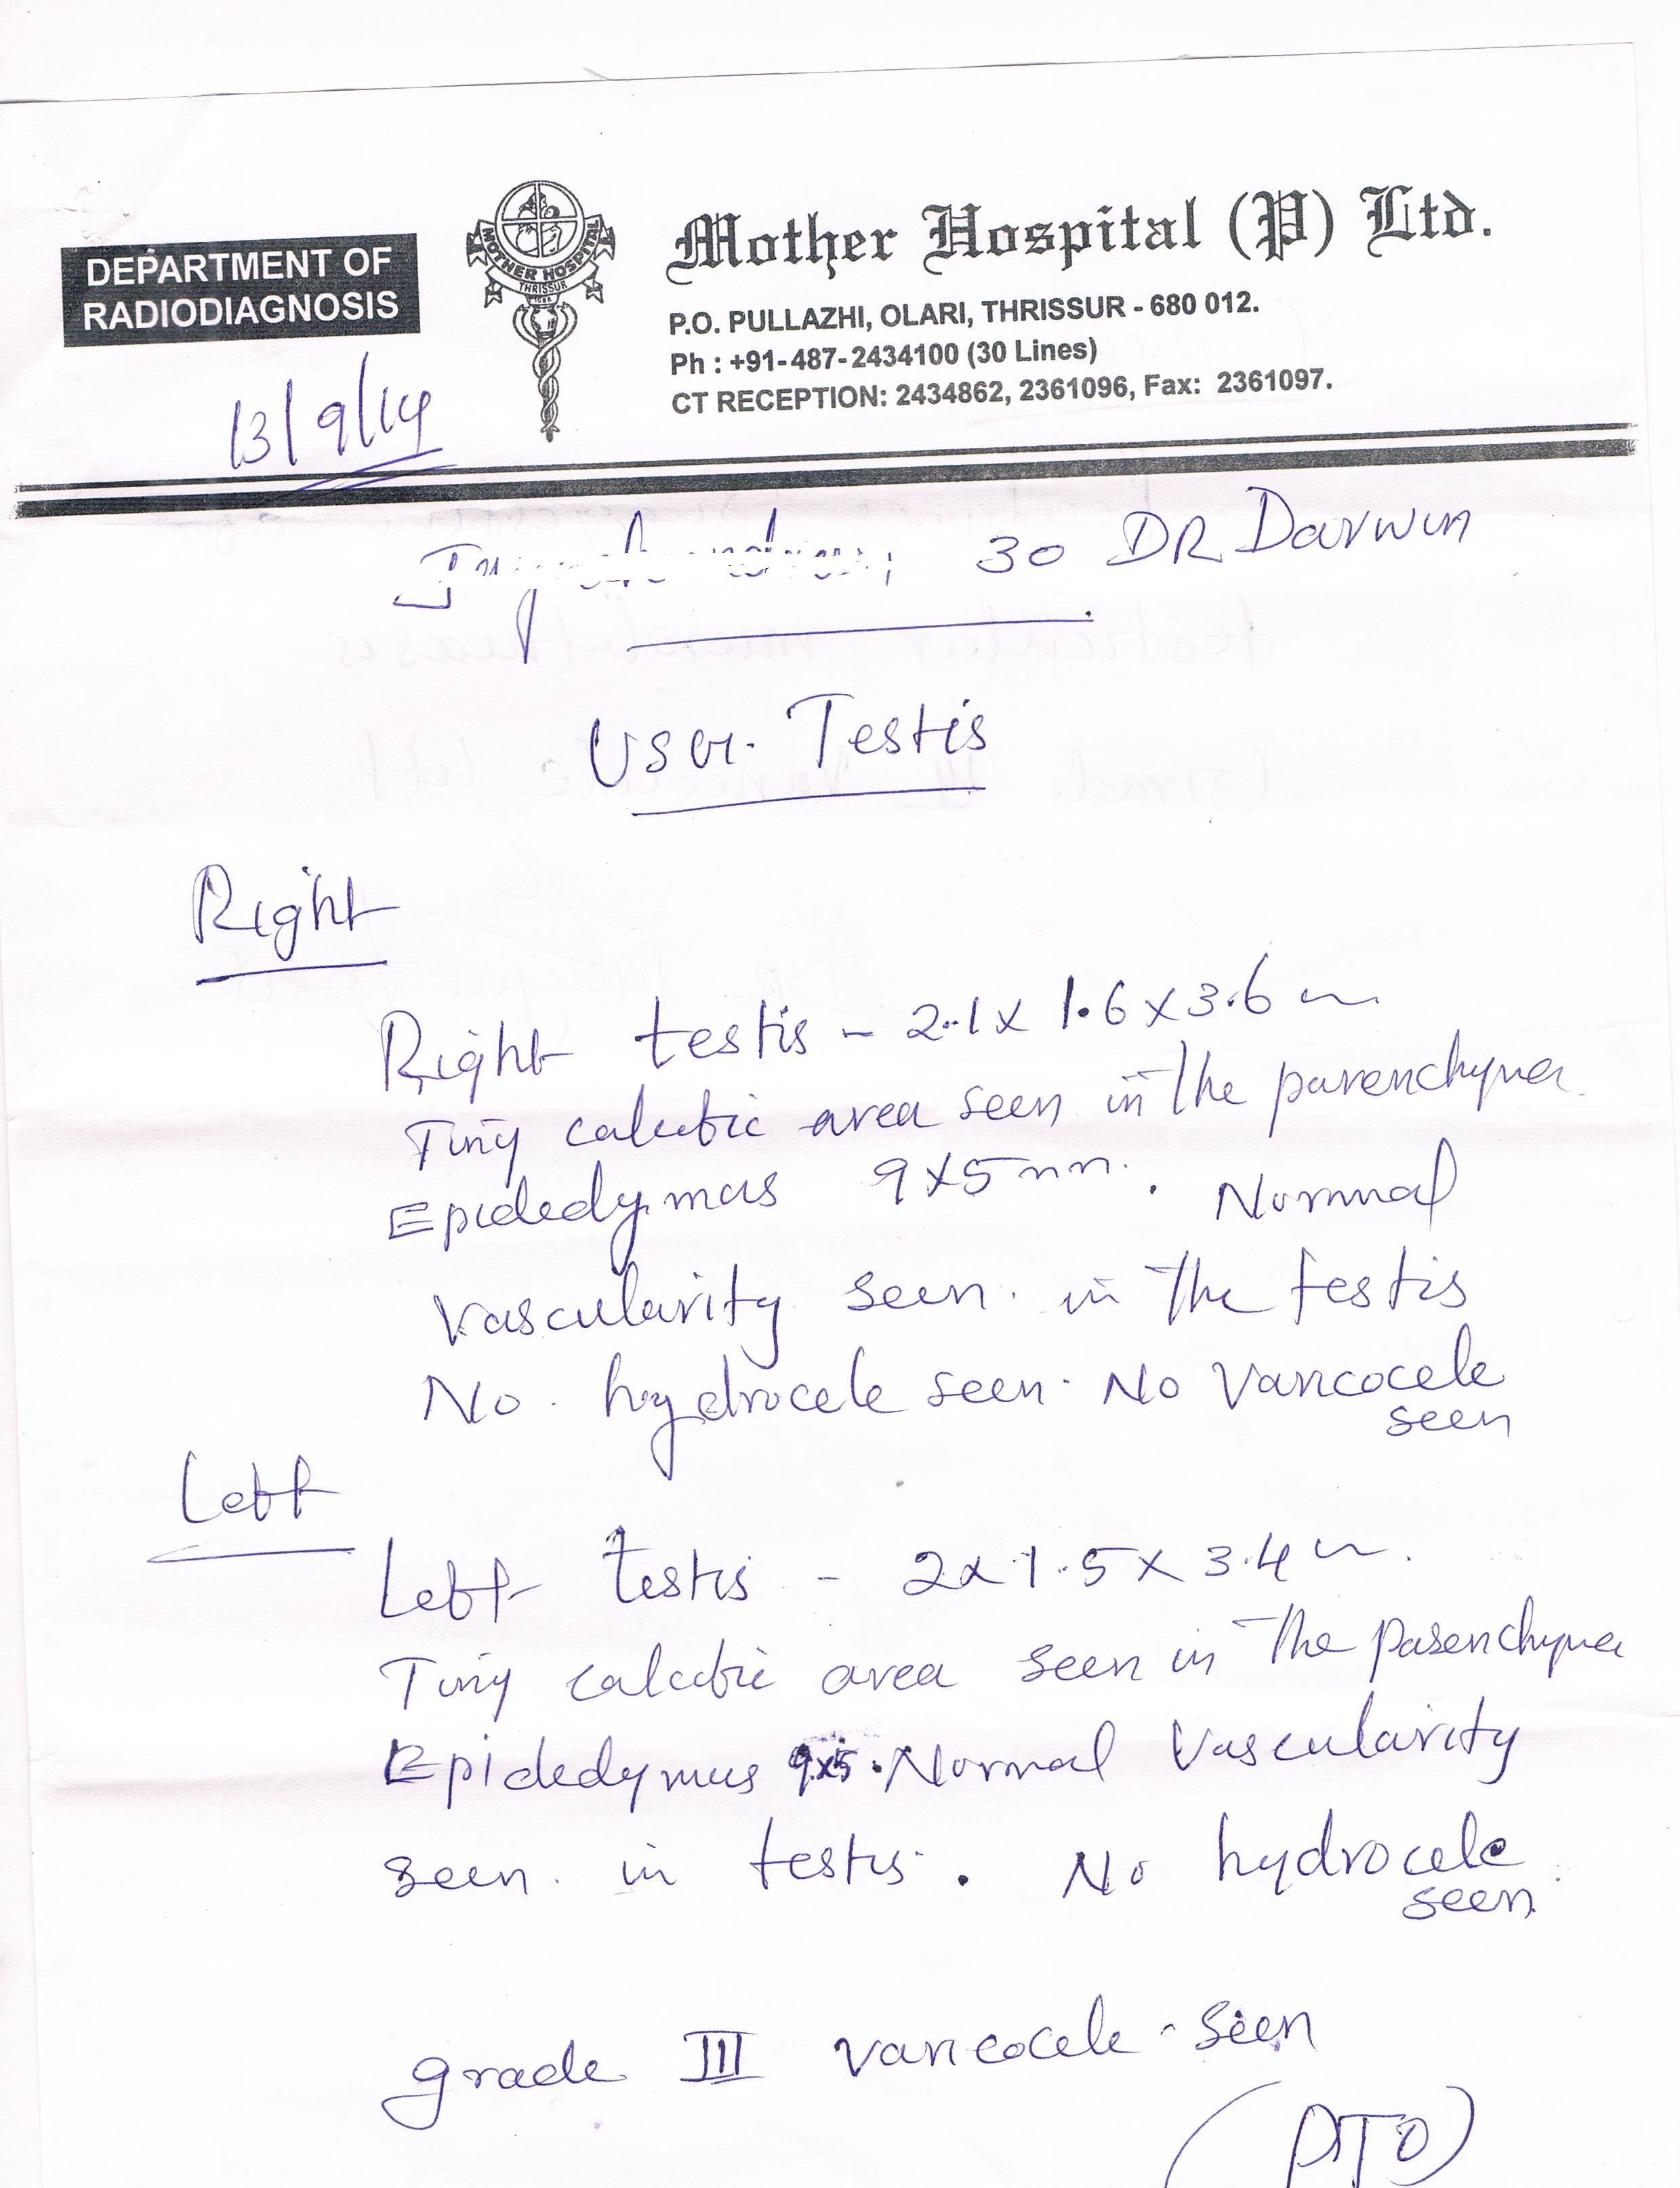 DEPARTMENT OF
RADIODIAGNOSIS
MOTHER HOSPITAL
THRISSUR
Mother Hospital (P) Ltd.
P.O. PULLAZHI, OLARI, THRISSUR - 680 012.
Ph : +91-487-2434100 (30 Lines)
CT RECEPTION: 2434862, 2361096, Fax: 2361097.
13/9/14
30 DR Darwin
USG. Testis
Right
Right testis - 2.1 x 1.6 x 3.6 cm
Tiny calcific area seen in the parenchyma
Epidedymus 9 x 5 mm. Normal
Vascularity seen. in the testis
No. hydrocele seen. No Varicocele
seen
Left
Left testis - 2 x 1.5 x 3.4 cm.
Tiny calcific area seen in the parenchyma
Epidedymus 9x5. Normal Vascularity
seen. in testis. No hydrocele
seen.
grade III varicocele - seen
(PTO)